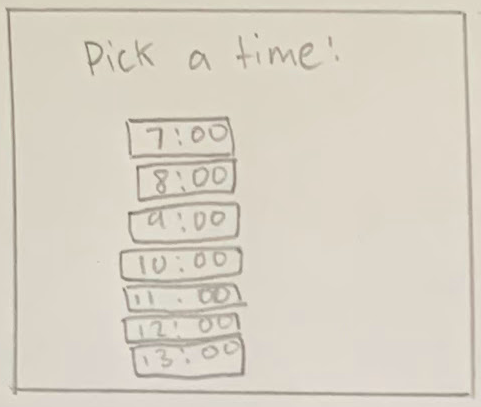 Pick a time!
7:00
8:00
9:00
10:00
11:00
12:00
13:00